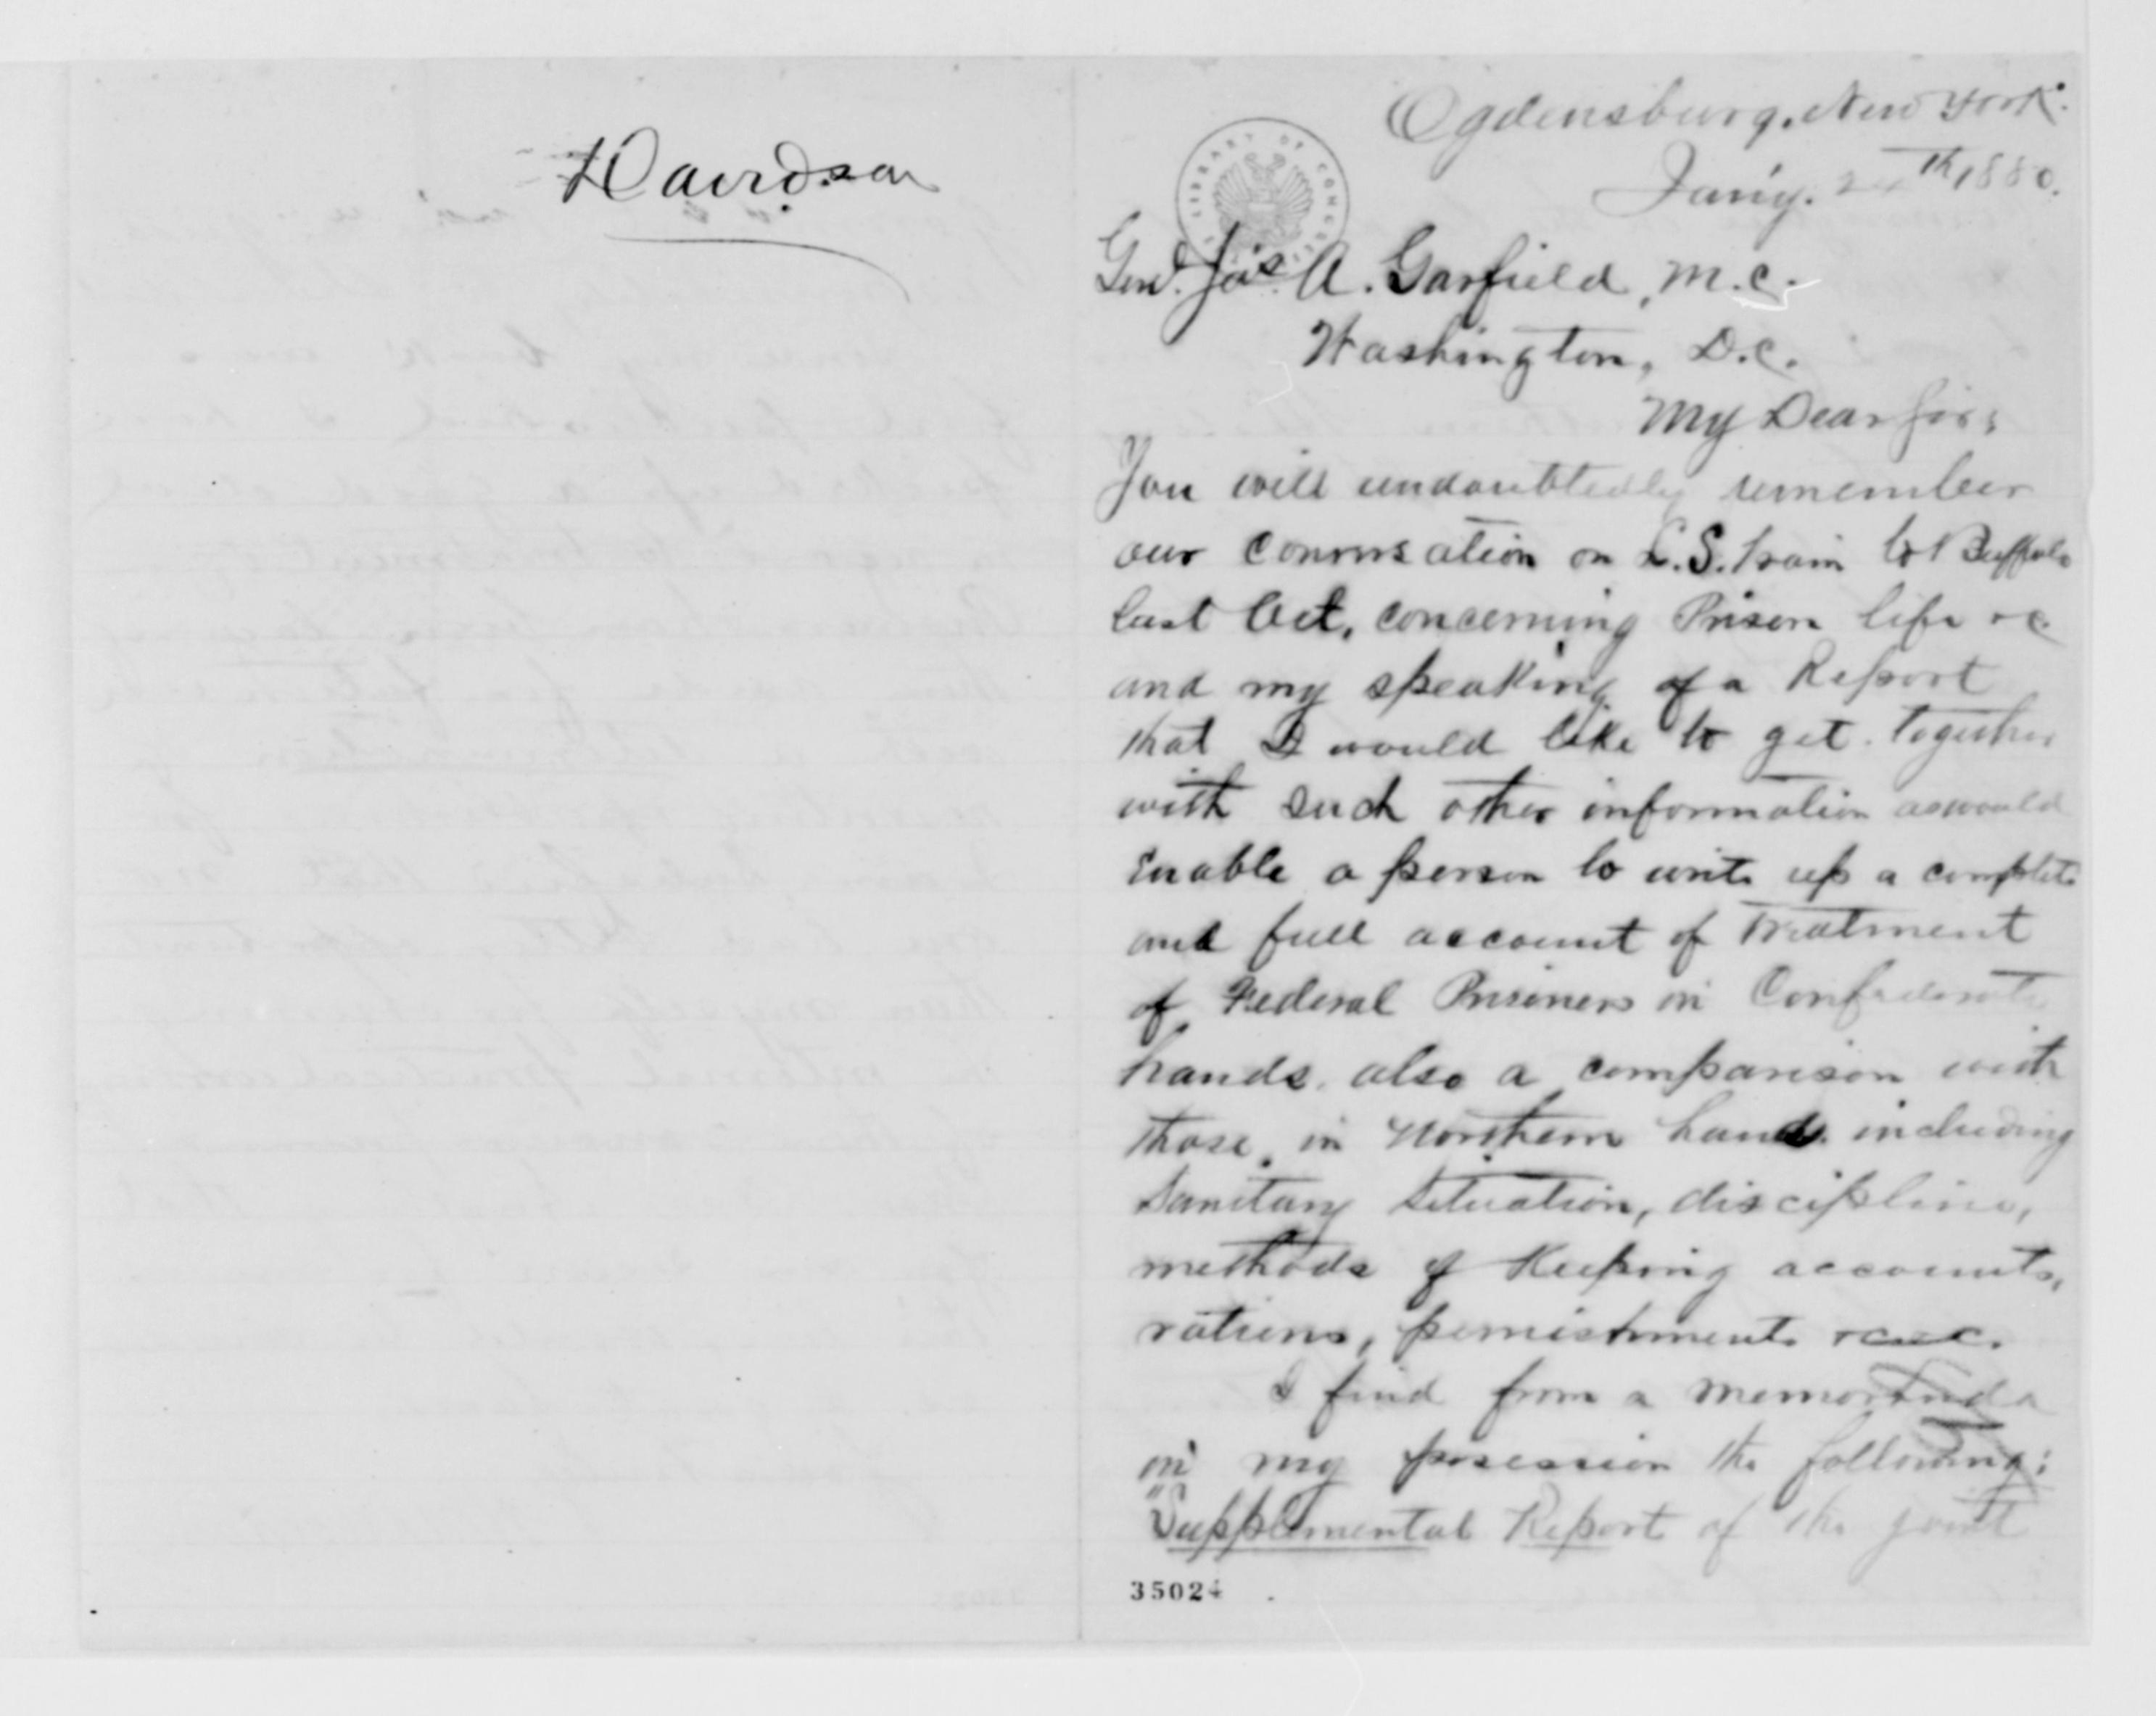 Davidson
Ogdensburg, New York.
Jan'y. 24th 1880.
Genl. Jas. A. Garfield, M.C.
Washington, D.C.
My Dear Sir:
You will undoubtedly remember
our conversation on L.S. train to Buffalo
last Oct. concerning Prison life &c
and my speaking of a Report
that I would like to get together
with such other information as would
enable a person to write up a complete
and full account of Treatment
of Federal Prisoners in Confederate
hands. also a comparison with
those in Northern hands including
Sanitary situation, discipline,
methods of Keeping accounts,
rations, punishments &c &c.
I find from a memoranda
in my posession the following:
"Supplemental Report of the joint
35024
LIBRARY OF CONGRESS